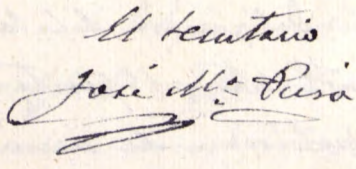 El Secretario
José Mª Pirso